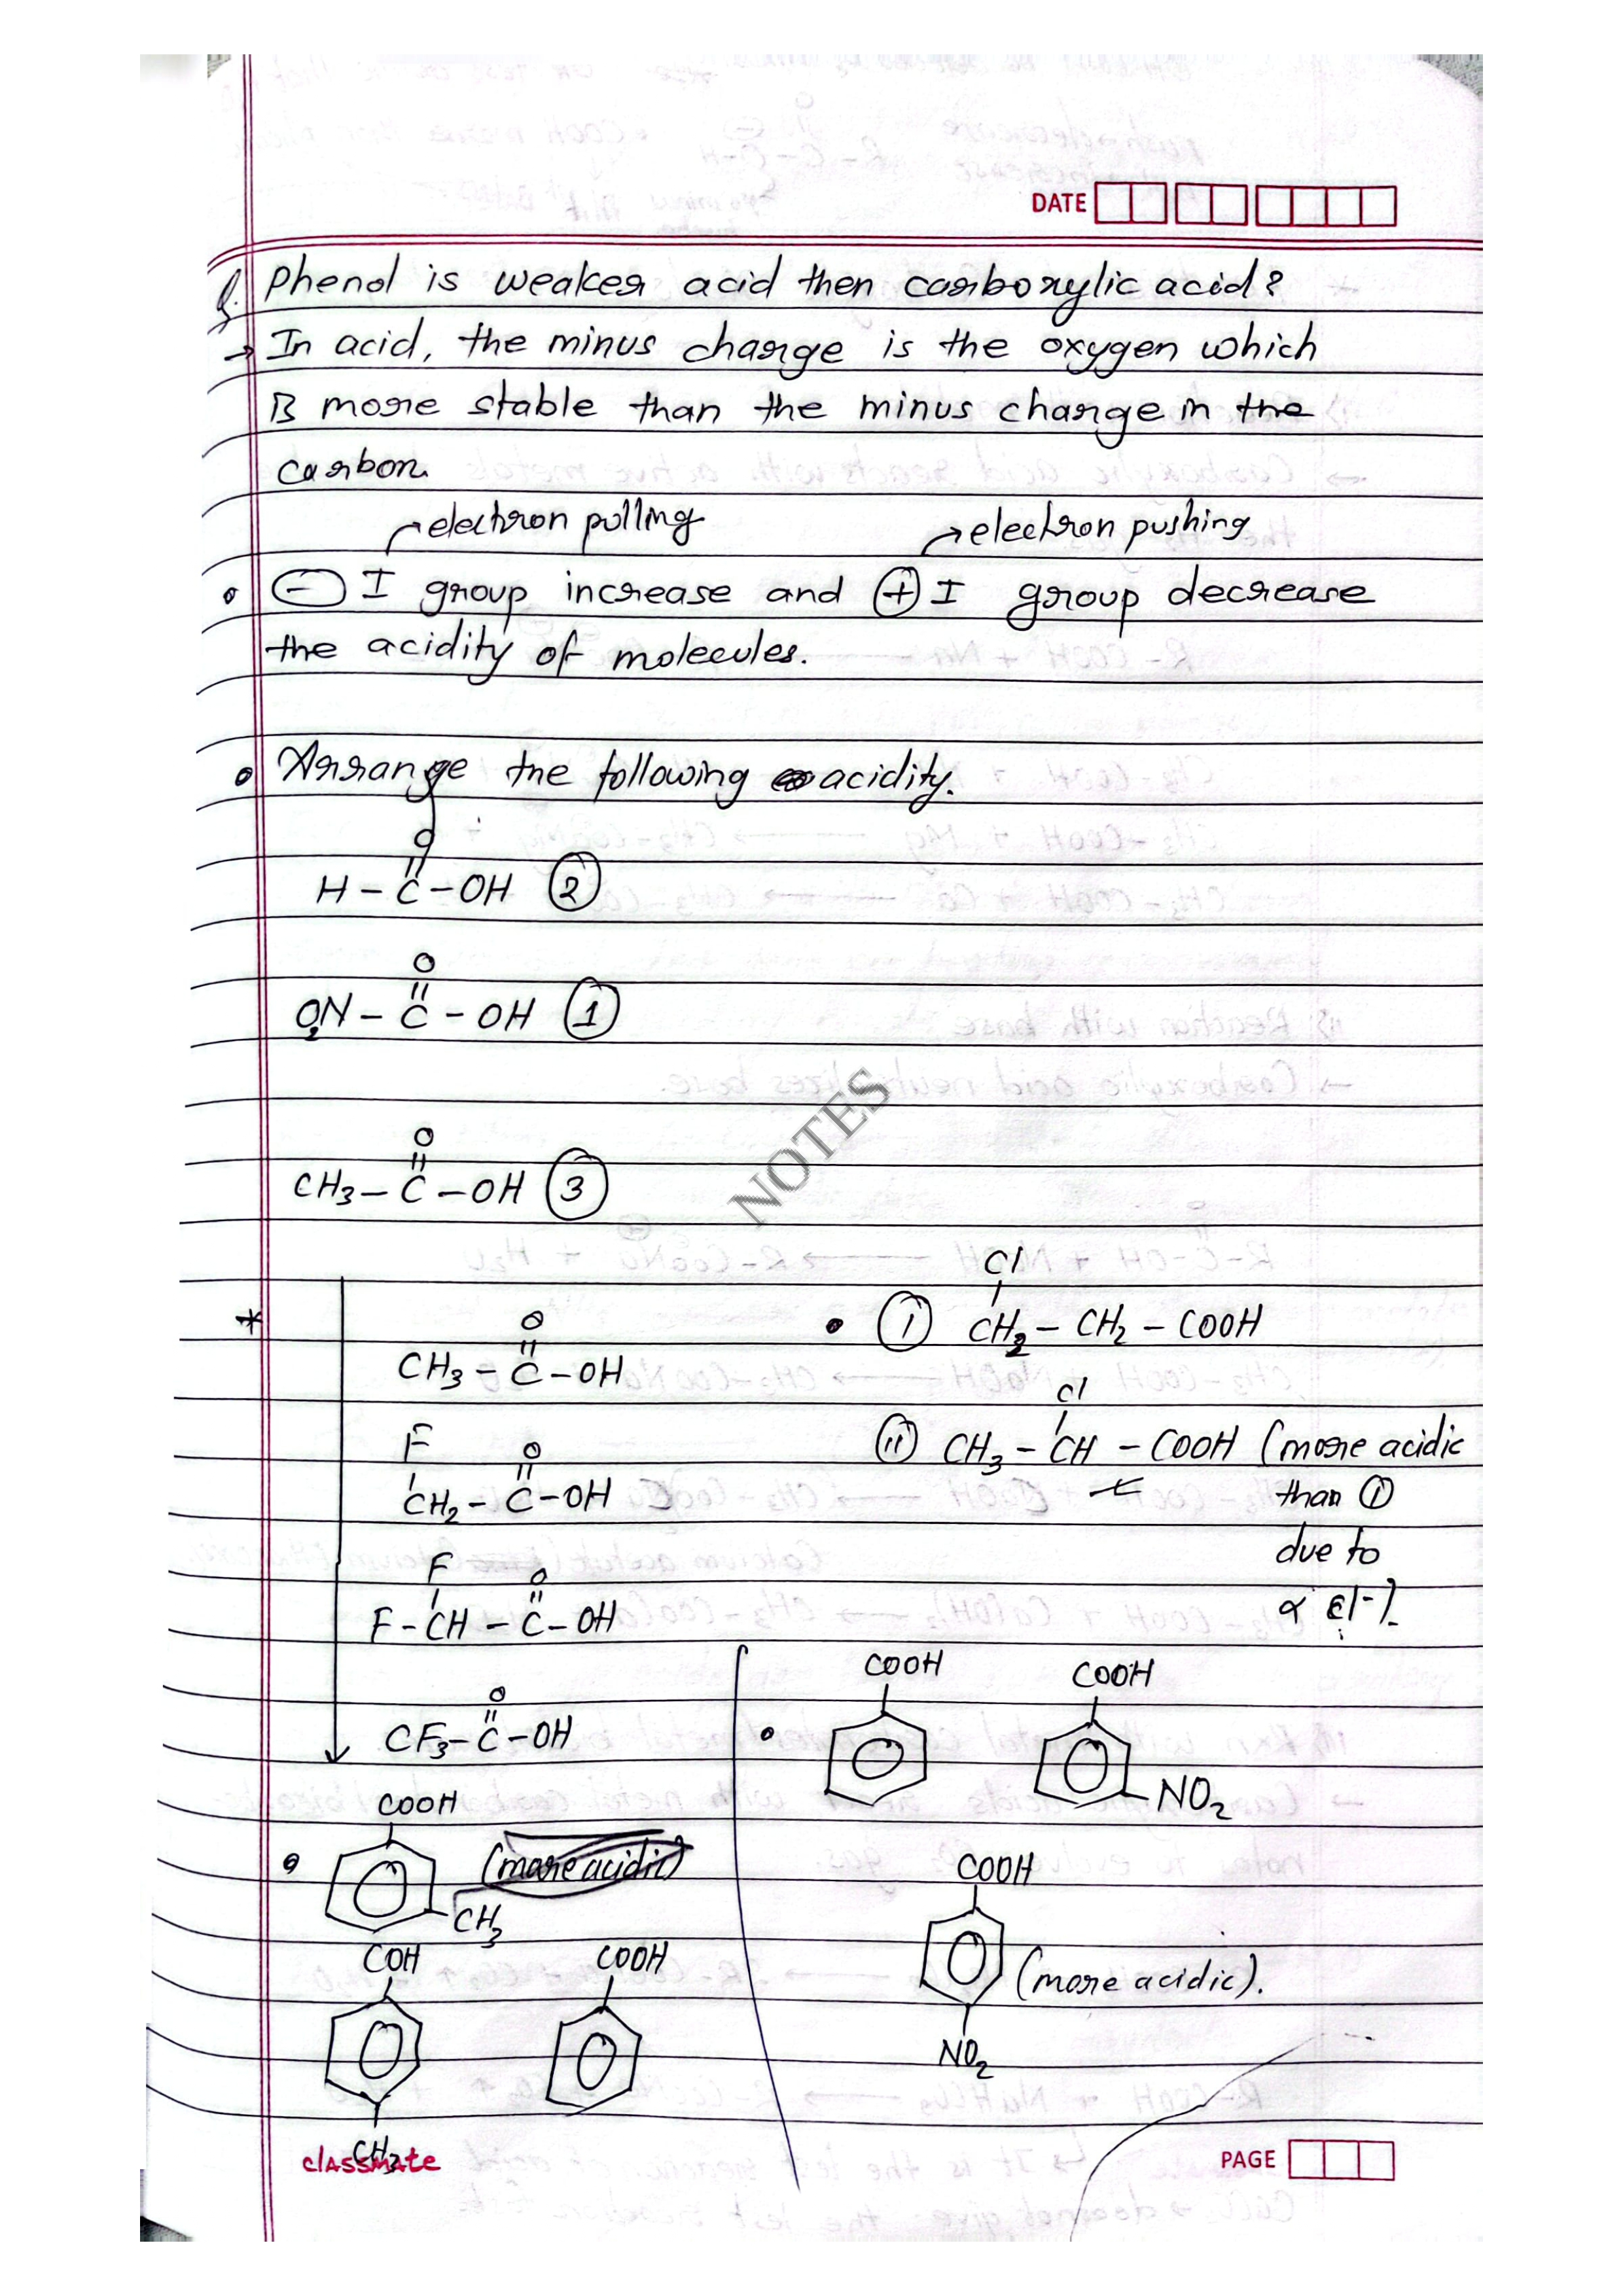 DATE
Q. Phenol is weaker acid then carboxylic acid?
→ In acid, the minus charge is the oxygen which
is more stable than the minus charge in the
carbon.
electron pulling
electron pushing
• ⊖ I group increase and ⊕ I group decrease
the acidity of molecules.
• Arrange the following acidity.
O
H - C - OH ②
O
O2N - C - OH ①
O
CH3 - C - OH ③
NOTES
*
O
CH3 - C - OH
F O
CH2 - C - OH
F O
F - CH - C - OH
O
CF3 - C - OH
Cl
• (i) CH2 - CH2 - COOH
Cl
(ii) CH3 - CH - COOH (more acidic
than (i)
due to
α
COOH
• (more acidic)
CH3
COH COOH
CH3
COOH COOH
• NO2
COOH
(more acidic).
NO2
classmate
PAGE